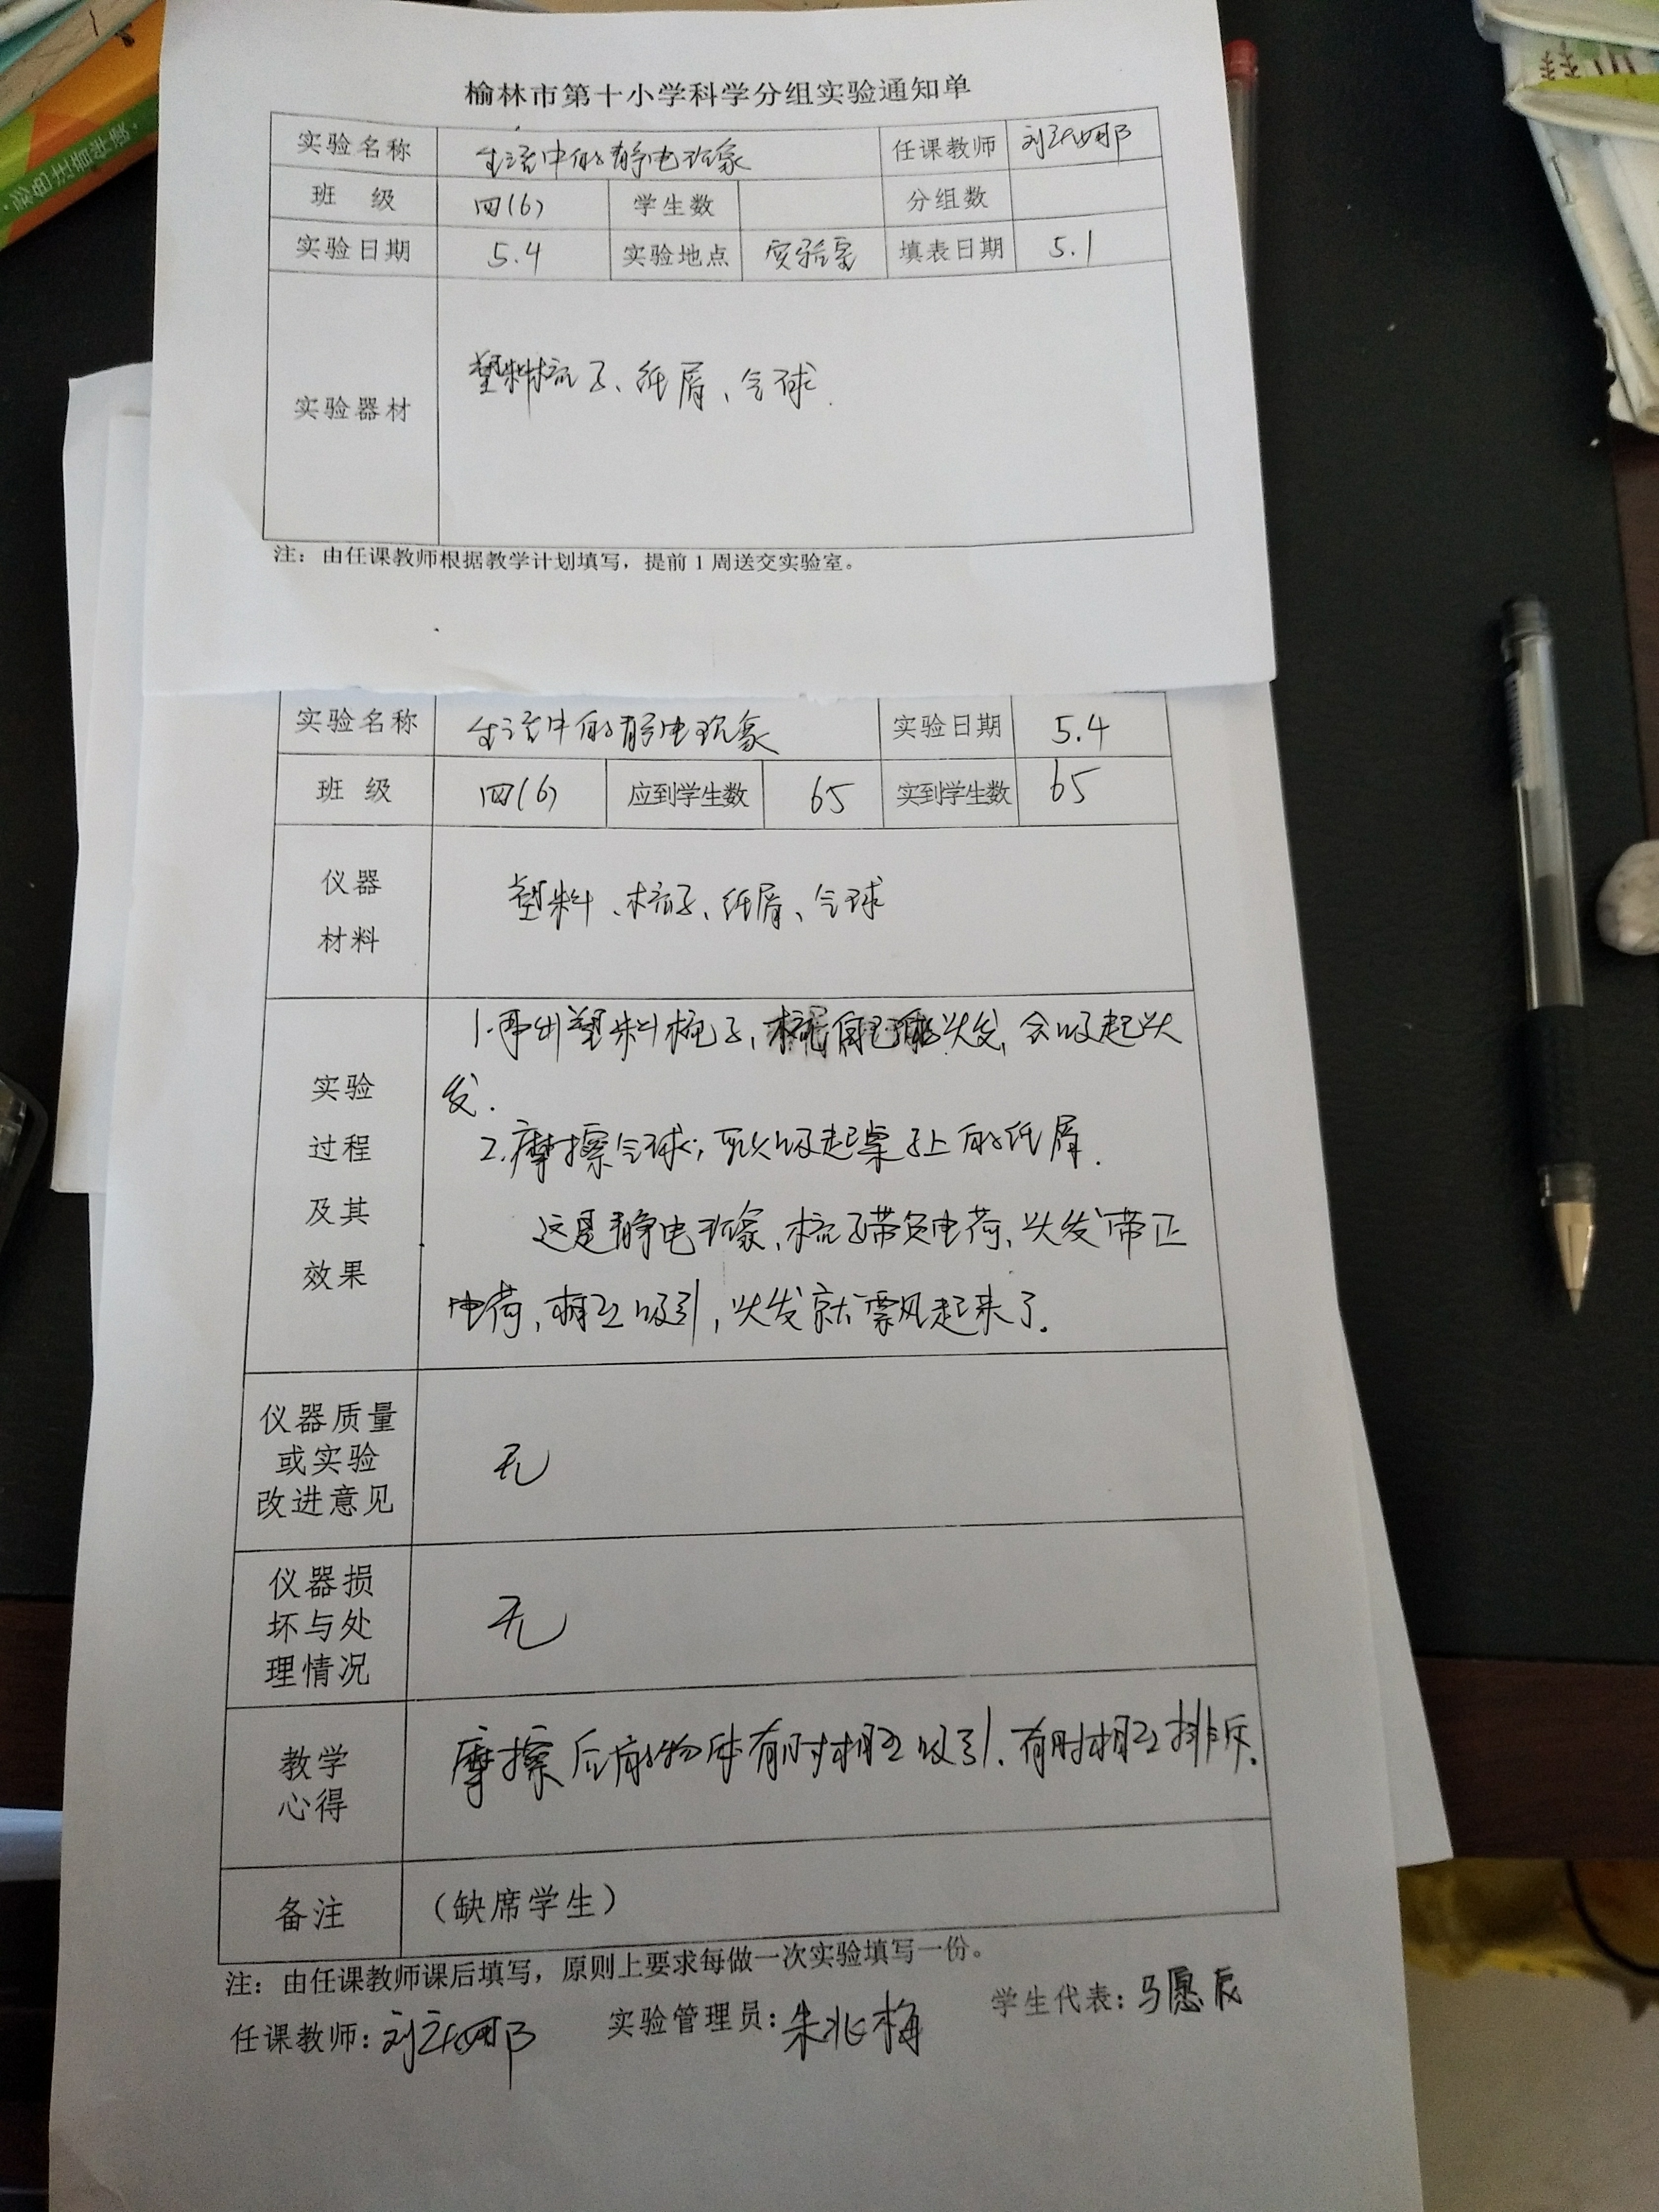 榆林市第十小学科学分组实验通知单
实验名称 生活中的静电现象 任课教师 刘
班 级 四(6) 学生数 分组数
实验日期 5.4 实验地点 实验室 填表日期 5.1
实验器材 塑料梳子、纸屑、气球.
注：由任课教师根据教学计划填写，提前1周送交实验室。
实验名称 生活中的静电现象 实验日期 5.4
班 级 四(6) 应到学生数 65 实到学生数 65
仪器
材料
塑料、梳子、纸屑、气球
实验
过程
及其
效果
1.再出塑料梳子,梳自己的头发,会吸起头
发.
2.摩擦气球;可以吸起桌子上的纸屑.
这是静电现象,梳子带负电荷,头发带正
电荷,相互吸引,头发就飘起来了.
仪器质量
或实验
改进意见
无
仪器损
坏与处
理情况
无
教学
心得
摩擦后的物体有时相互吸引.有时相互排斥.
备注 （缺席学生）
注：由任课教师课后填写，原则上要求每做一次实验填写一份。
任课教师：刘 实验管理员：朱兆梅 学生代表：马愿辰